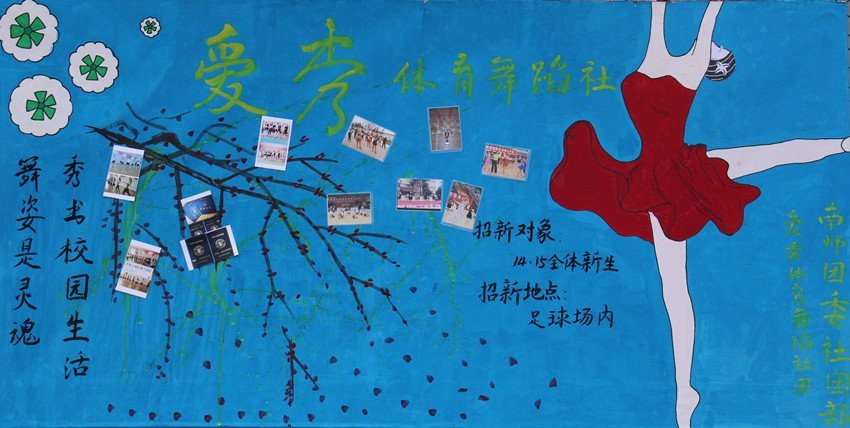 爱秀体育舞蹈社
秀出校园生活
舞姿是灵魂
招新对象:
14.15全体新生
招新地点:
足球场内
南师团委社团部
爱秀体育舞蹈社团